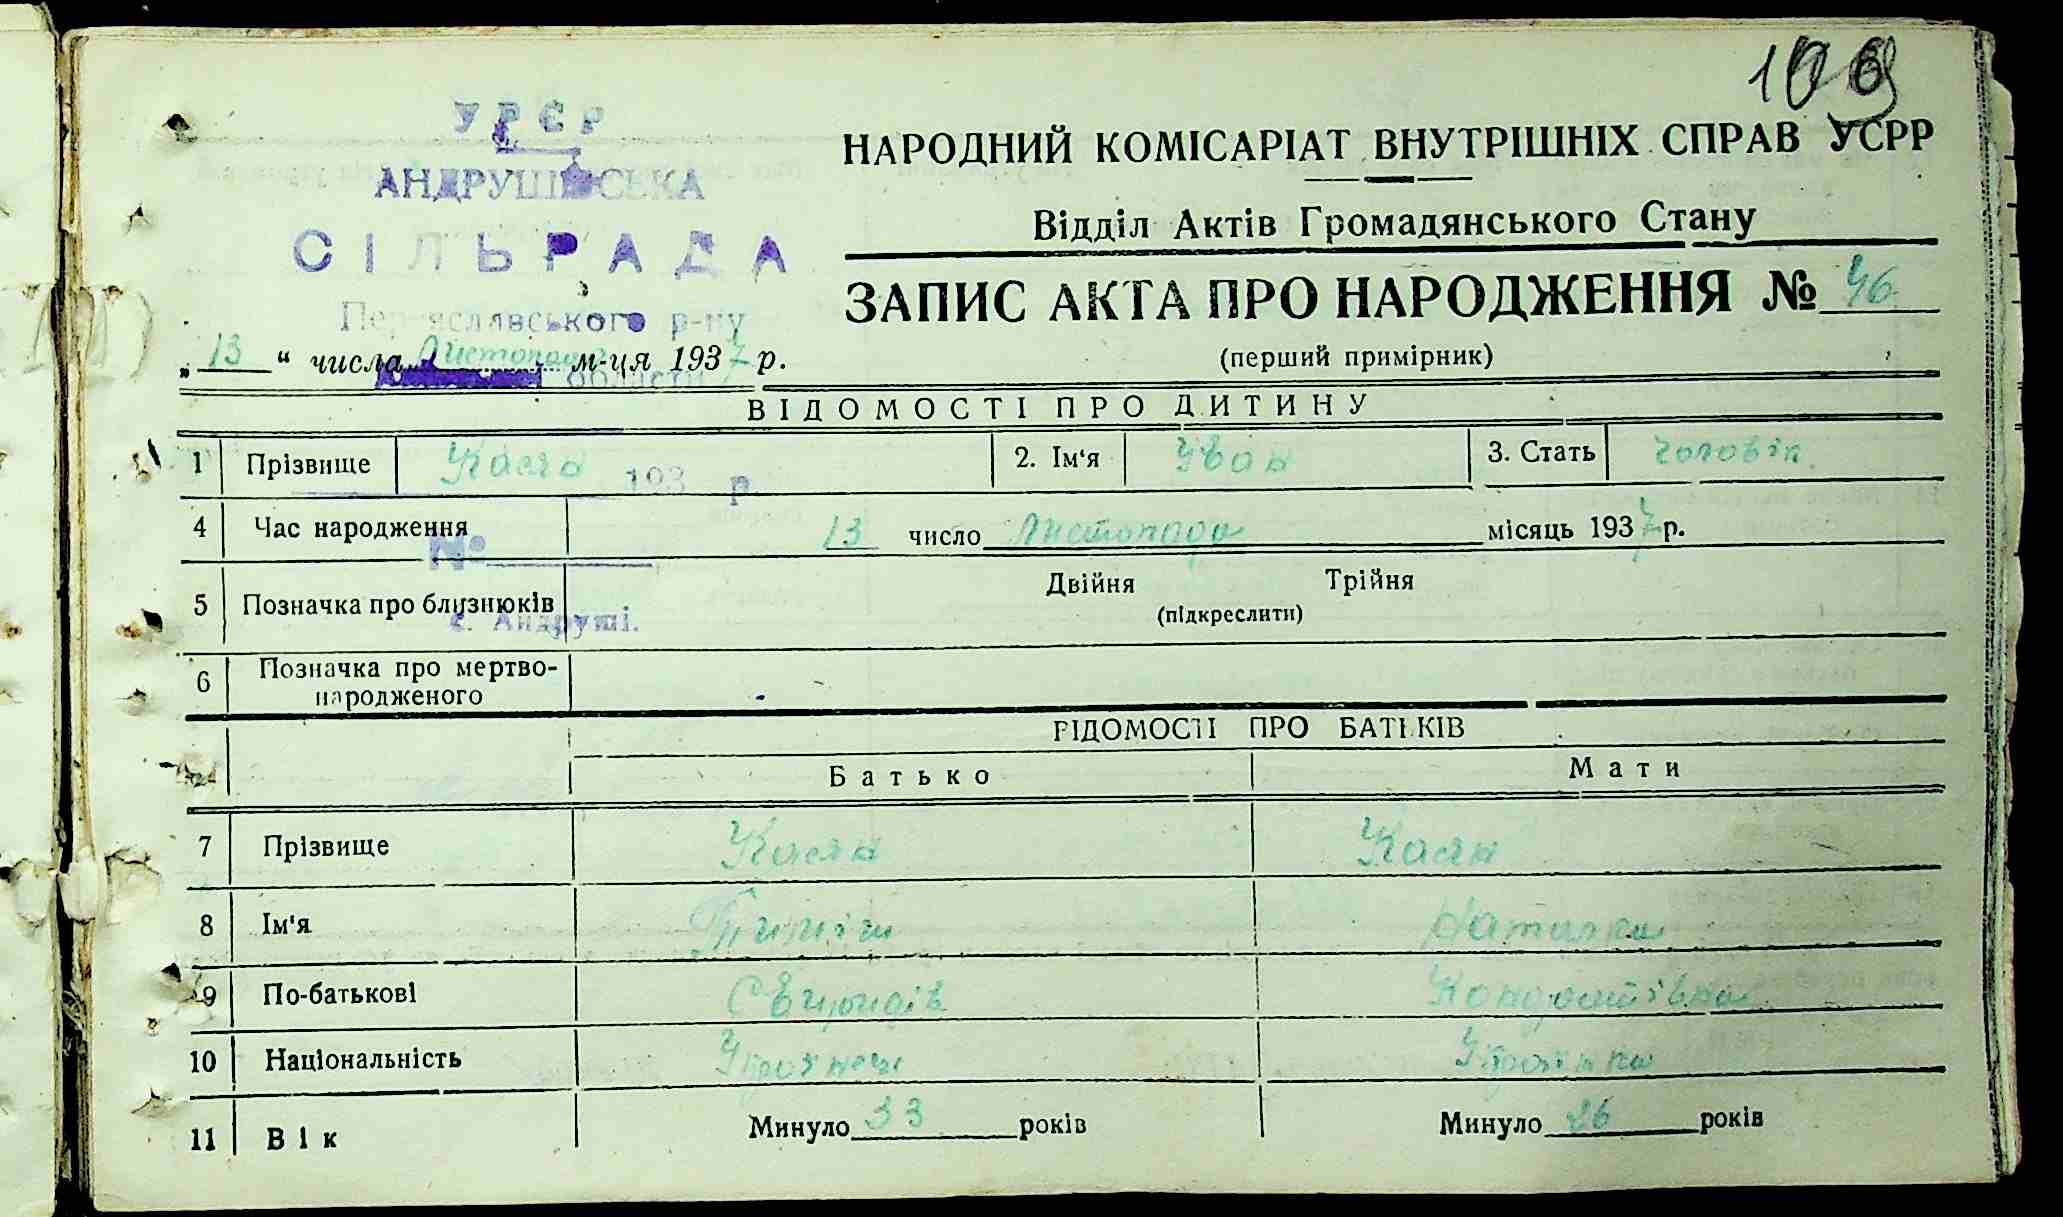 109
УРСР
АНДРУШІВСЬКА
СІЛЬРАДА
Переяславського р-ну
області
193 р.
№
с. Андруші.
НАРОДНИЙ КОМІСАРІАТ ВНУТРІШНІХ СПРАВ УСРР
Відділ Актів Громадянського Стану
ЗАПИС АКТА ПРО НАРОДЖЕННЯ № 46
(перший примірник)
„ 13 “ числа Листопада м-ця 1937 р.
ВІДОМОСТІ ПРО ДИТИНУ
1 Прізвище Касян 2. Ім'я Іван 3. Стать чоловік.
4 Час народження 13 число Листопада місяць 1937 р.
5 Позначка про близнюків Двійня Трійня
(підкреслити)
6 Позначка про мертво-
народженого
ВІДОМОСТІ ПРО БАТЬКІВ
Батько Мати
7 Прізвище Касян Касян
8 Ім'я Наталка
9 По-батькові
10 Національність Українец Українка
11 Вік Минуло 33 років Минуло 26 років